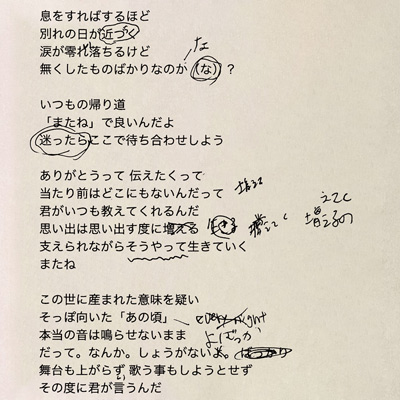 息をすればするほど
別れの日が近づく
涙が零れ落ちるけど
な
無くしたものばかりなのが(な)?
いつもの帰り道
「またね」で良いんだよ
迷ったらここで待ち合わせしよう
ありがとうって 伝えたくって
当たり前はどこにもないんだって
君がいつも教えてくれるんだ
思い出は思い出す度に増える
支えられながらそうやって生きていく
またね
この世に産まれた意味を疑い
そっぽ向いた「あの頃」 everynight
本当の音は鳴らせないまま
だって。なんか。しょうがない
舞台も上がらず、歌う事もしようとせず
その度に君が言うんだ